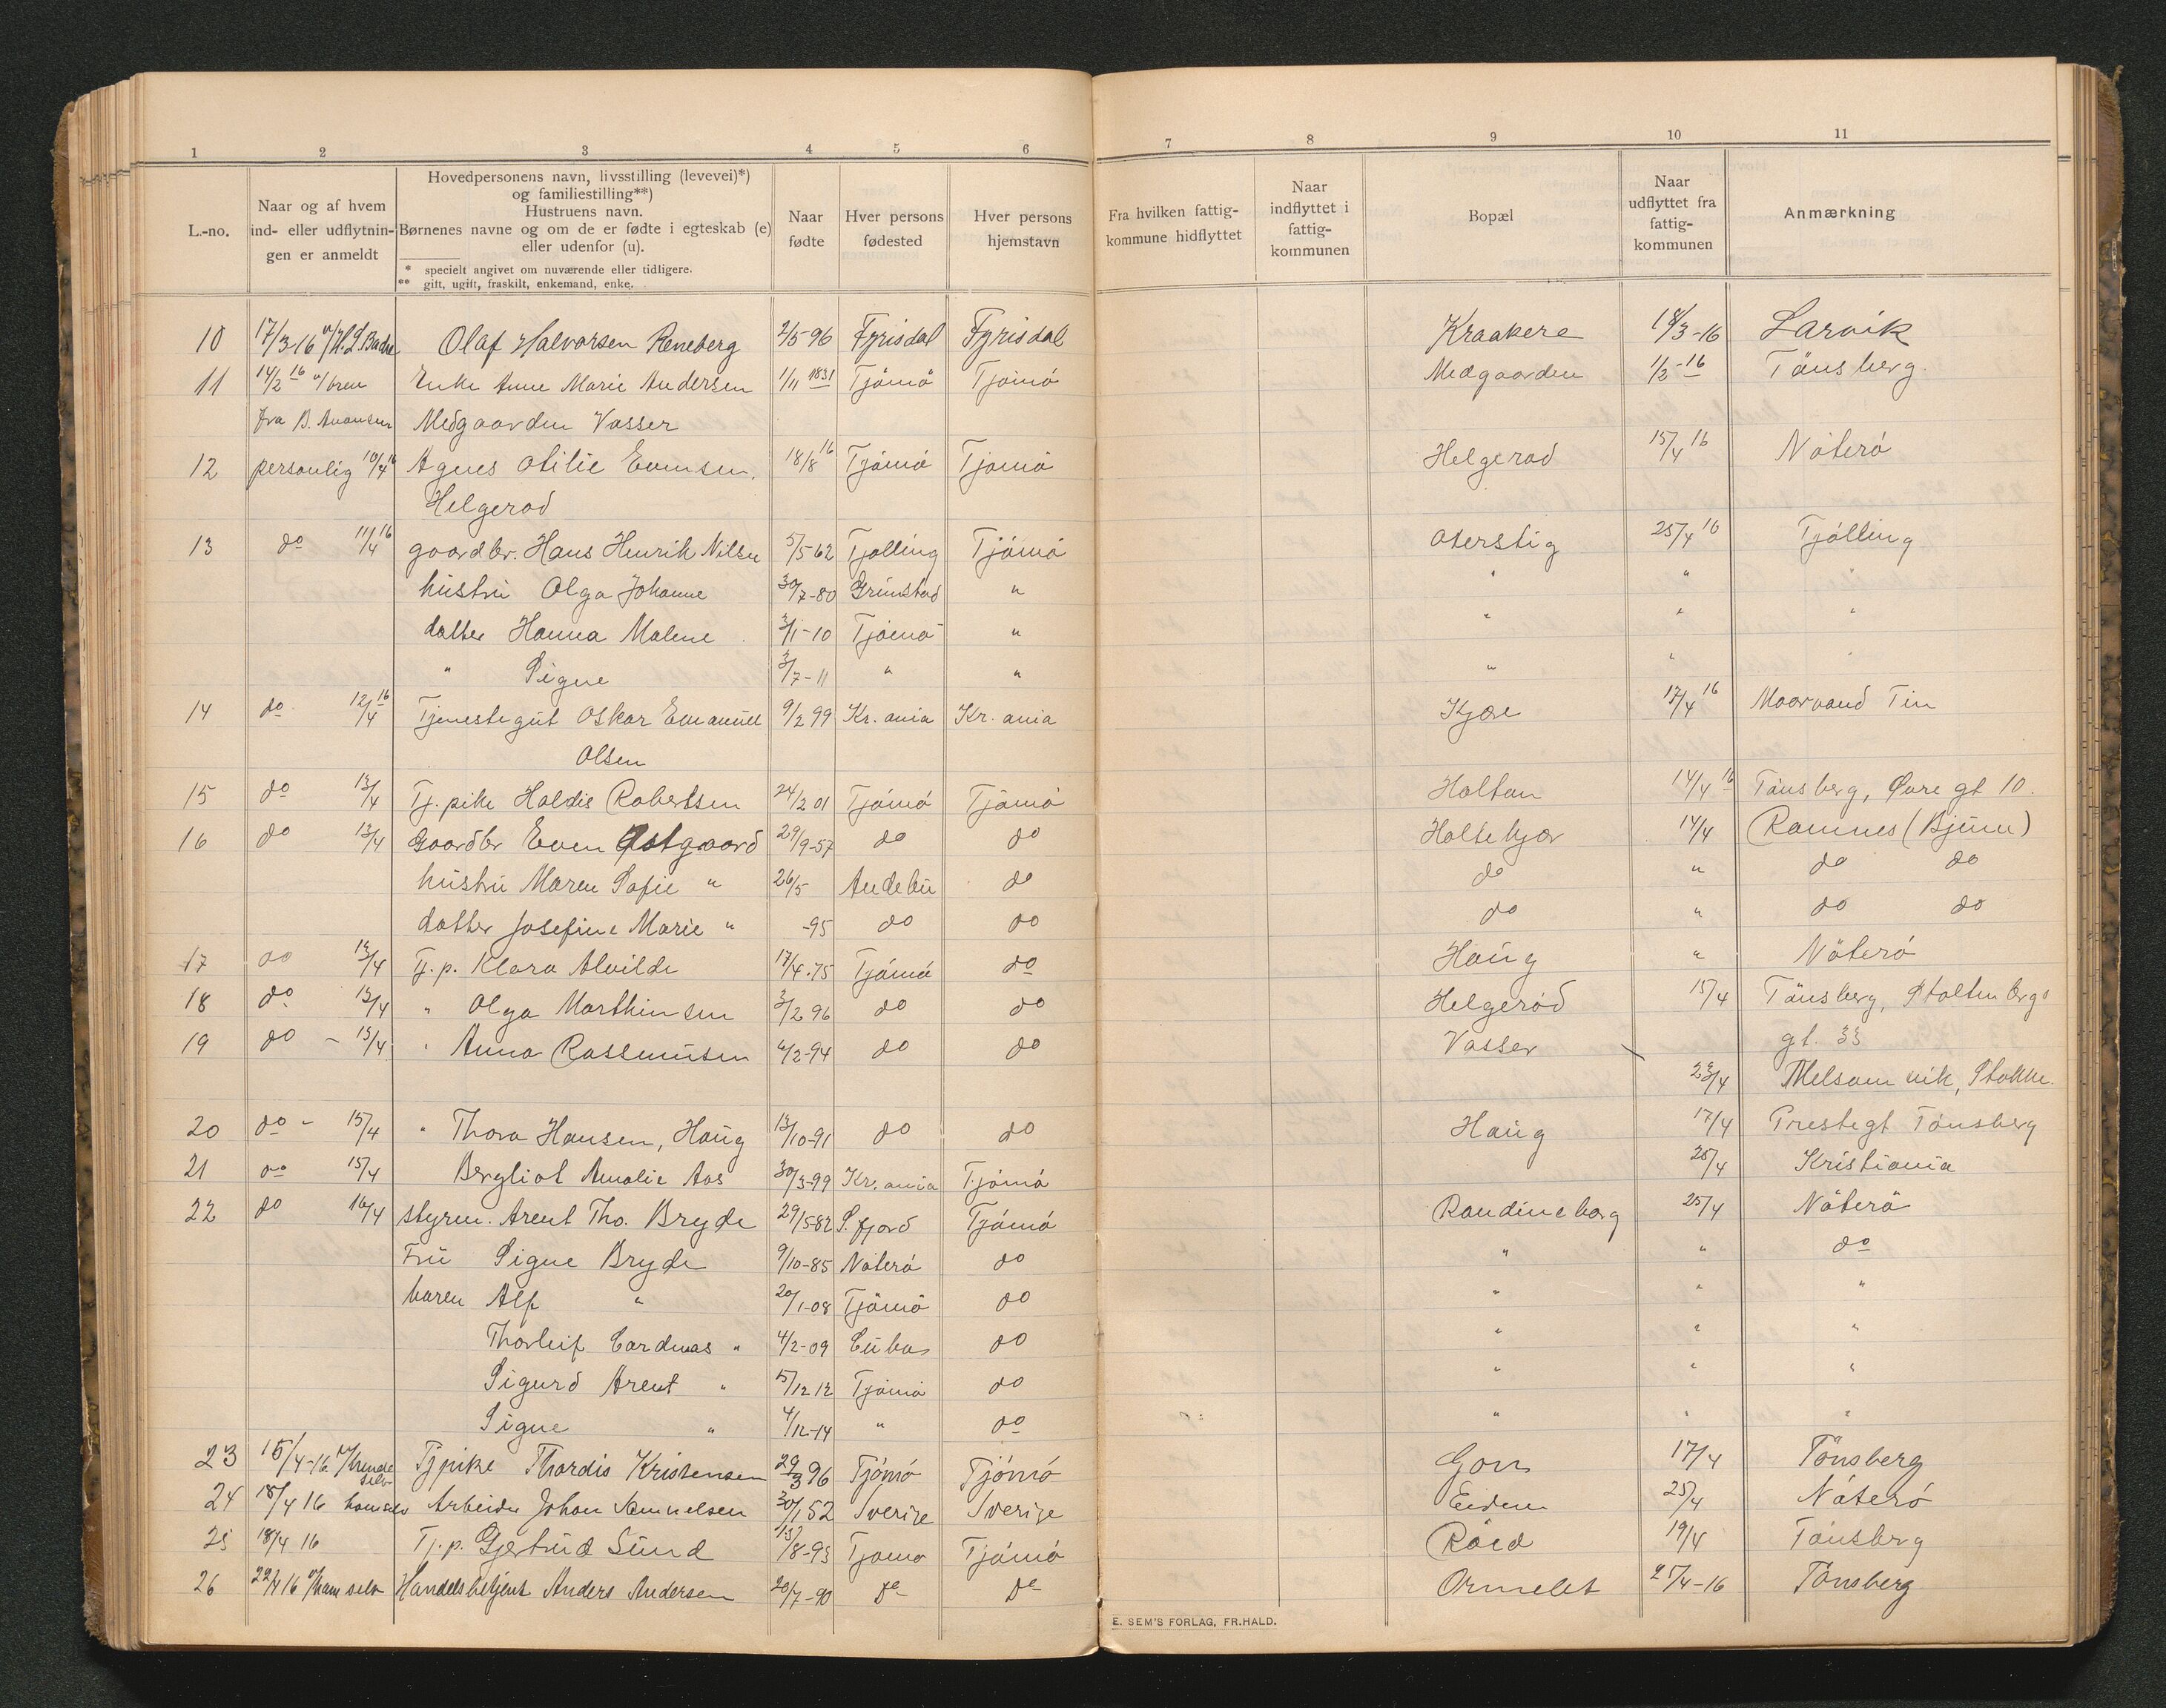 1 2 3 4 5 6 7 8 9 10 11
L.-no.
Naar og af hvem
ind- eller udflytnin-
gen er anmeldt
Hovedpersonens navn, livsstilling (levevei)*)
og familiestilling**)
Hustruens navn.
Børnenes navne og om de er fødte i egteskab (e)
eller udenfor (u).
* specielt angivet om nuværende eller tidligere.
** gift, ugift, fraskilt, enkemand, enke.
Naar
fødte
Hver persons
fødested
Hver persons
hjemstavn
Fra hvilken fattig-
kommune hidflyttet
Naar
indflyttet i
fattig-
kommunen
Bopæl
Naar
udflyttet fra
fattig-
kommunen
Anmærkning
10 17/3-16 Olaf Halvorsen Reneberg 2/5-96 Fyrisdal Fyrisdal Kraakere 18/3-16 Larvik
11 14/2 16 v/brev Enke Anne Marie Andersen 1/11 1831 Tjömö Tjömö Medgaarden 1/2-16 Tönsberg
fra B. Medgaarden Vasser
12 personlig 10/4 16 Agnes Otilie Evensen. 18/8 16 Tjömö Tjömö Helgerod 15/4 16 Nöterö
Helgerod
13 do 11/4 16 gaardbr. Hans Henrik Nilsen 5/5-62 Tjölling Tjömö Oterstig 25/4 16 Tjölling
hustru Olga Johanne 30/7-80 Grimstad " " " "
datter Hanna Malene 3/1-10 Tjömö " " " "
" Signe 3/7-11 " " " " "
14 do 12/4 16 Tjenestegut Oskar Emanuel 9/2 99 Kr.ania Kr.ania Kjære 17/4 16 Maarvand Tin
Olsen
15 do 13/4 Tj. pike Haldis Robertsen 24/2 01 Tjömö Tjömö Holtan 14/4 16 Tönsberg, Øvre gt 10.
16 do 13/4 Gaardbr Even Østgaard 29/9-57 do do Holtekjær 14/4 Ramnes (Bjune)
hustru Maren Sofie " 26/5 Andebu do do " do do
datter Josefine Marie " -95 do do do " do do
17 do 13/4 Tj. p. Klara Alvilde 17/4-75 Tjömö do Haug " Nöterö
18 do 13/4 " Olga Marthinsen 3/2 96 do do Helgeröd 15/4 Tönsberg, Stoltenbergs
19 do - 15/4 " Anna Rasmussen 6/2-94 do do Vasser gt. 33
23/4 Melsomvik, Stokke.
20 do - 15/4 " Thora Hansen, Haug 13/10-91 do do Haug 17/4 Prestegt Tönsberg
21 do 15/4 Bergliot Amalie Aas 30/3-99 Kr.ania Tjömö 25/4 Kristiania
22 do 16/4 styrm. Arent Tho. Bryde 29/5 82 S.fjord Tjömö Randineborg 25/4 Nöterö
Fru Signe Bryde 9/10-85 Nöterö do " " do
baren Alf " 20/1-08 Tjömö do " " "
Thorleif Cardenas " 4/2-09 Cuba do " " "
Sigurd Arent " 5/12 12 Tjömö do " " "
Signe " 4/12-14 " do " " "
23 15/4-16 v/hende selv Tjpike Thordis Kristensen 29/3 96 Tjömö Tjömö Gon 17/4 Tönsberg
24 18/4 16 Arbeider Johan Samuelsen 30/1 52 Sverige Sverige Eiden 25/4 Nöterö
25 18/4 16 Tj. p. Gjertrud Sund 13/8-93 Tjömö Tjömö Röed 19/4 Tönsberg
26 22/4 16 v/ham selv Handelsbetjent Anders Andersen 20/7-90 do do Ormelet 25/4-16 Tönsberg
E. SEM'S FORLAG, FR.HALD.